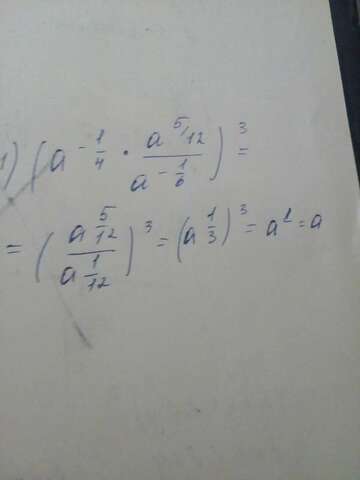 1) (a^{-\frac{1}{4}} · \frac{a^{5/12}}{a^{-\frac{1}{6}}})^3 =
= (\frac{a^{\frac{5}{12}}}{a^{\frac{1}{12}}})^3 = (a^{\frac{1}{3}})^3 = a^1 = a